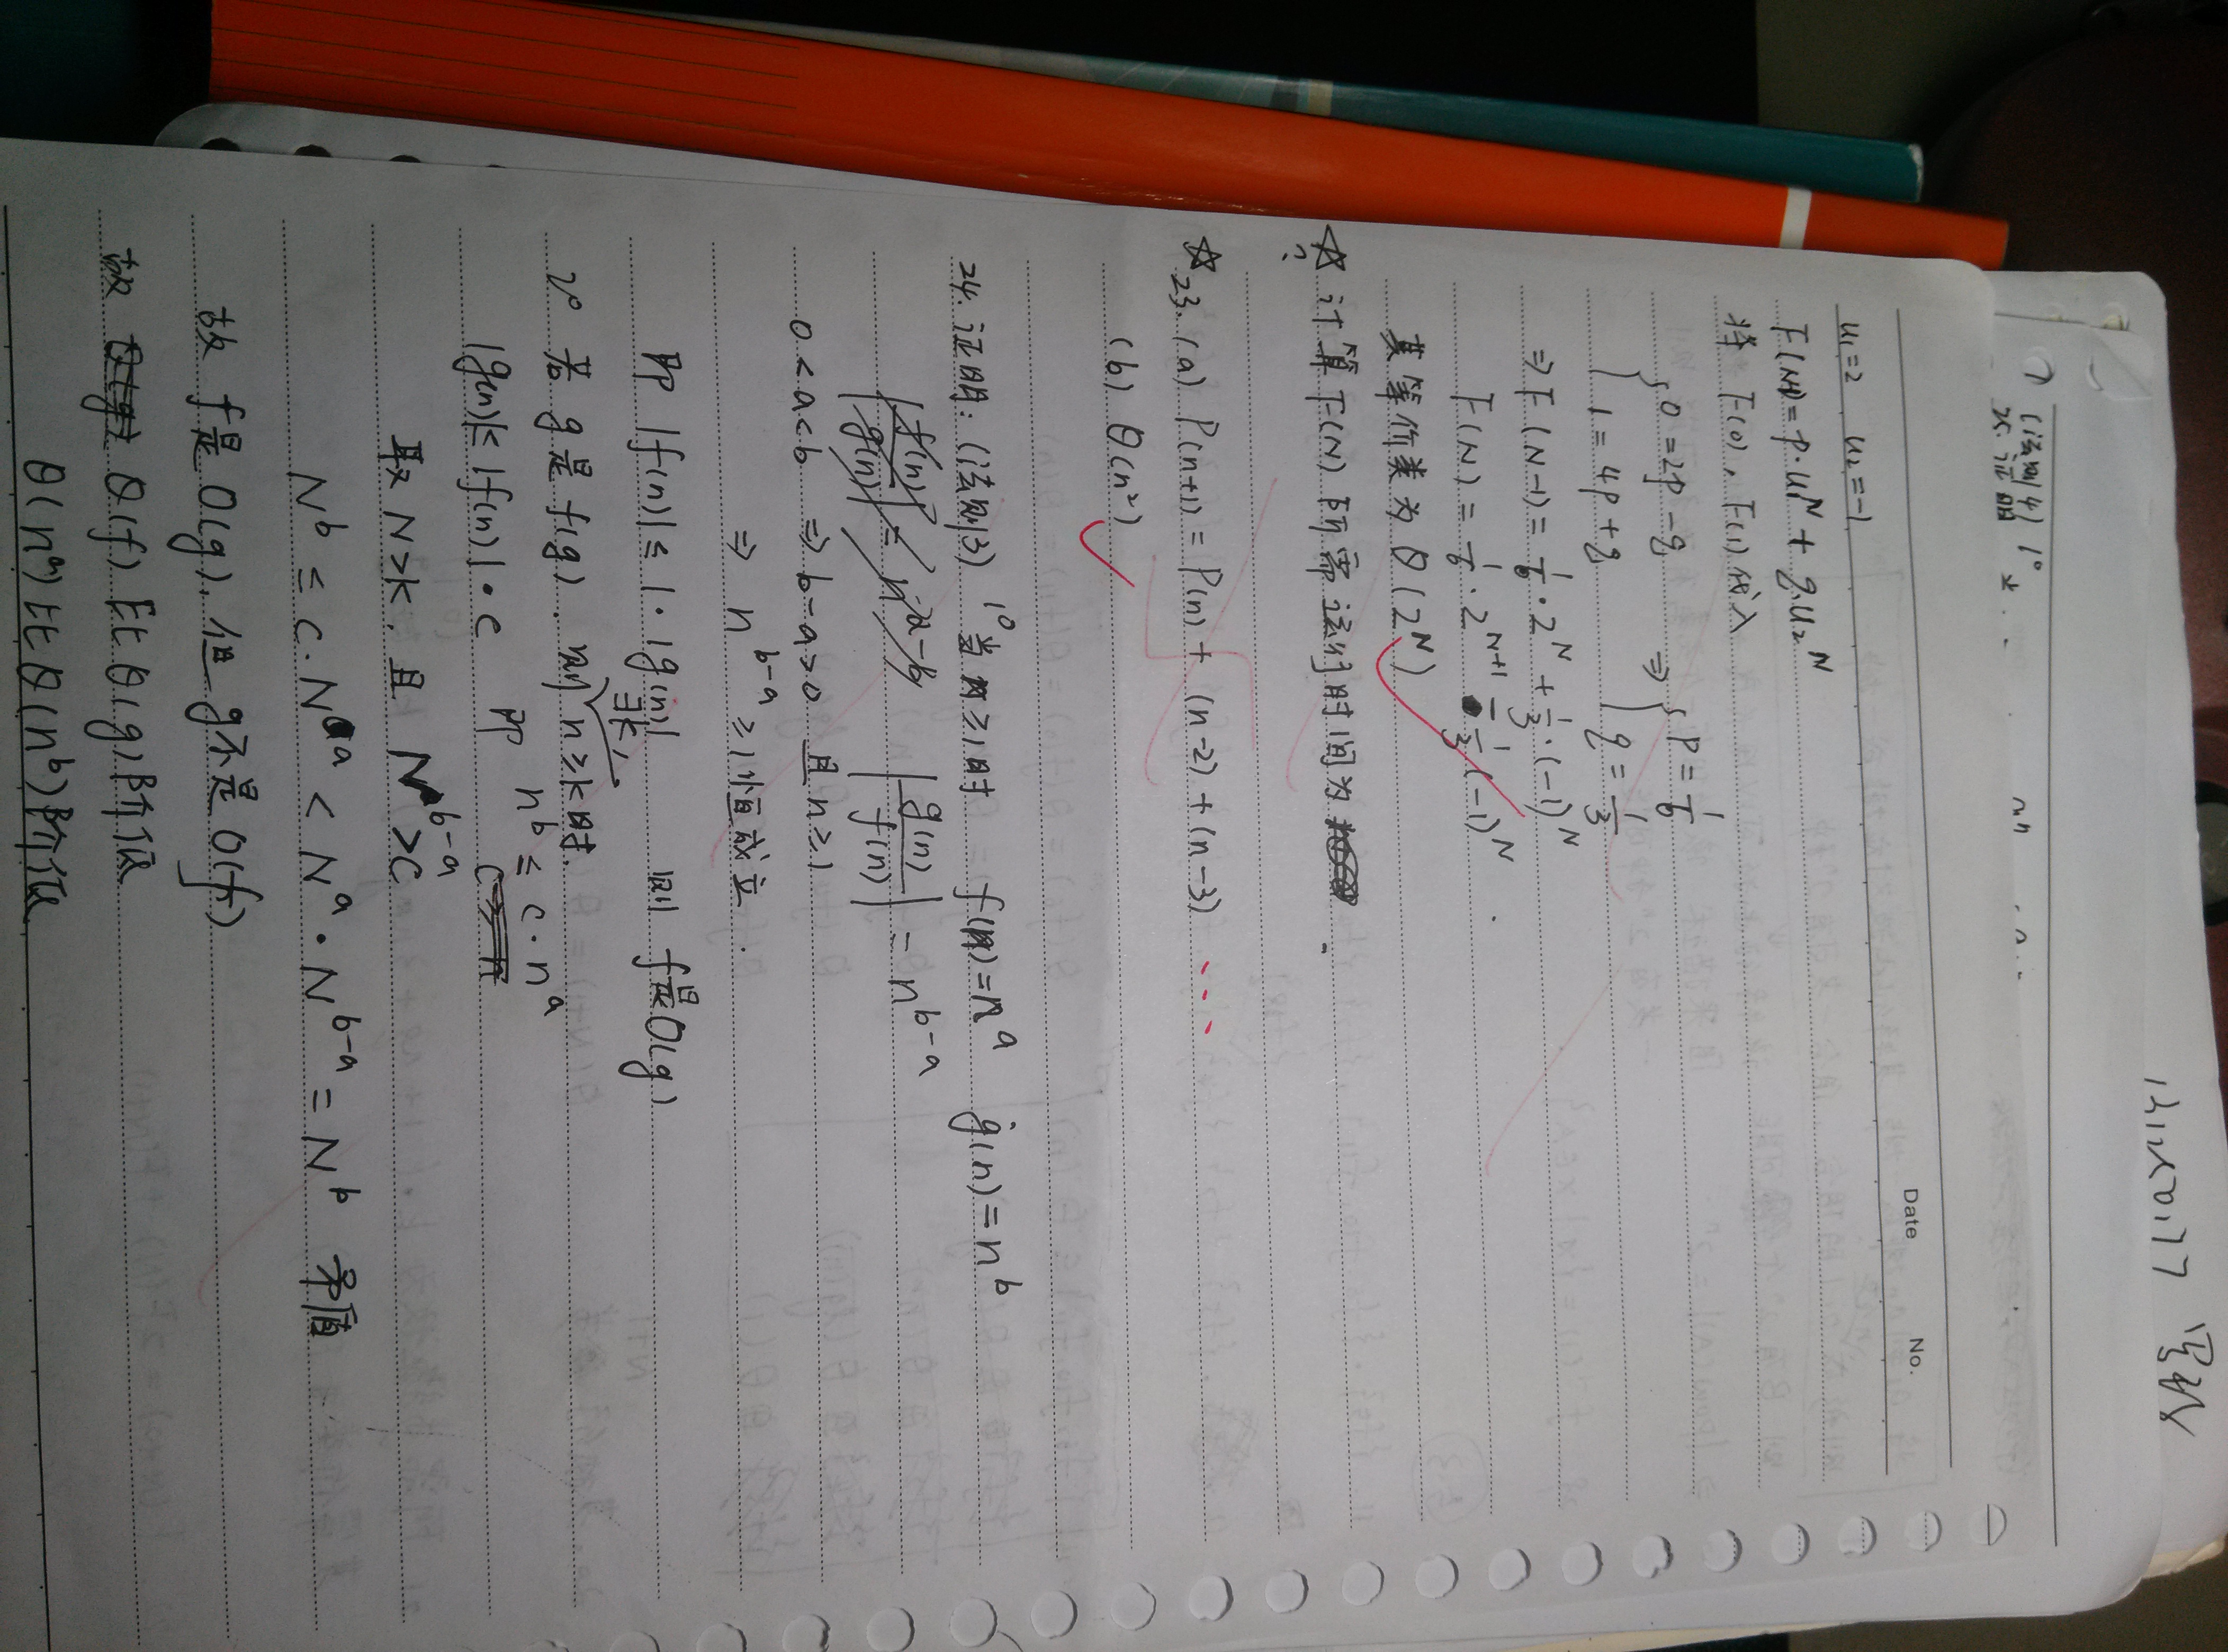 14120127 梁
(法则4)
证明 1°
Date No.
u₁=2 u₂=-1
F(N)=p·u₁ᴺ+q·u₂ᴺ
将 F(0),F(1)代入
{0=2p-q ⇒ {p=1/6
{1=4p+q {q=1/3
⇒F(N-1)=1/6·2ᴺ+1/3·(-1)ᴺ
F(N)=1/6·2ᴺ⁺¹-1/3(-1)ᴺ.
其等价类为 θ(2ᴺ)
☆? 计算F(N)所需运行时间为
☆23.(a) P(n+1)=P(n)+(n-2)+(n-3) ...
(b) θ(n²)
24. 证明:(法则3) 1° 当n≥1时 f(n)=nᵃ g(n)=nᵇ
|f(n)/g(n)|=nᵃ⁻ᵇ |g(n)/f(n)|=nᵇ⁻ᵃ
0<a<b ⇒b-a>0 且n≥1
⇒ nᵇ⁻ᵃ≥1恒成立.
即 |f(n)|≤1·|g(n)| 则 f是O(g)
2° 若g是f(g).则∃k,n≥k时.
|g(n)|≤|f(n)|·c 即 nᵇ≤c·nᵃ
取N>k.且 Nᵇ⁻ᵃ>c
Nᵇ≤c·Nᵃ<Nᵃ·Nᵇ⁻ᵃ=Nᵇ 矛盾
故f是O(g),但g不是O(f)
故 θ(f)比θ(g)阶低
θ(nᵃ)比θ(nᵇ)阶低